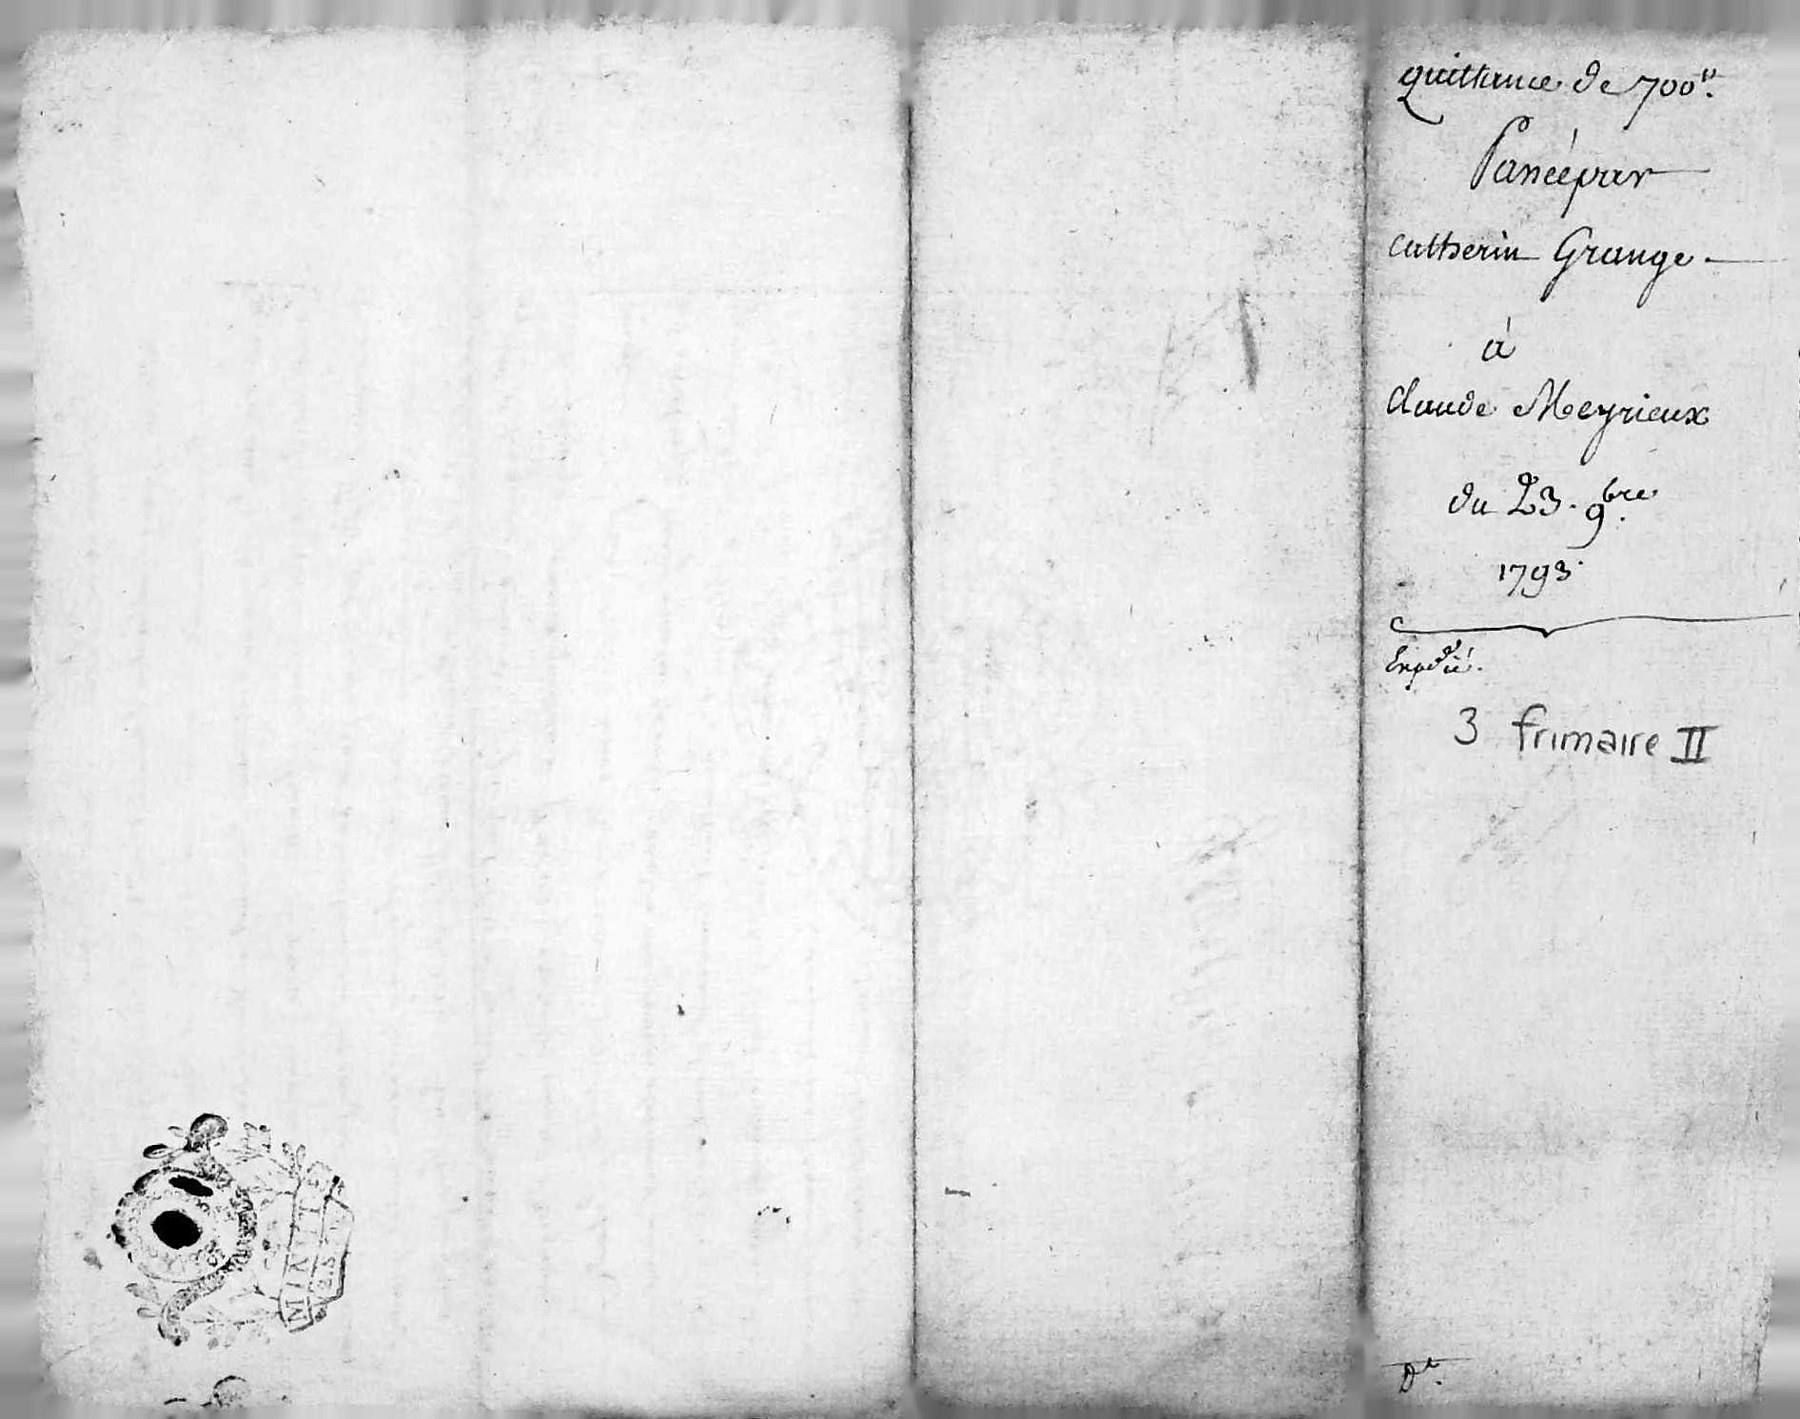 quittance de 700ᵗᵗ.
Passée par
catherin Grange
à
claude Meyrieux
du 23. 9bre.
1793.
Expdié.
3 frimaire II
MINUTES
2 S.
Dt.